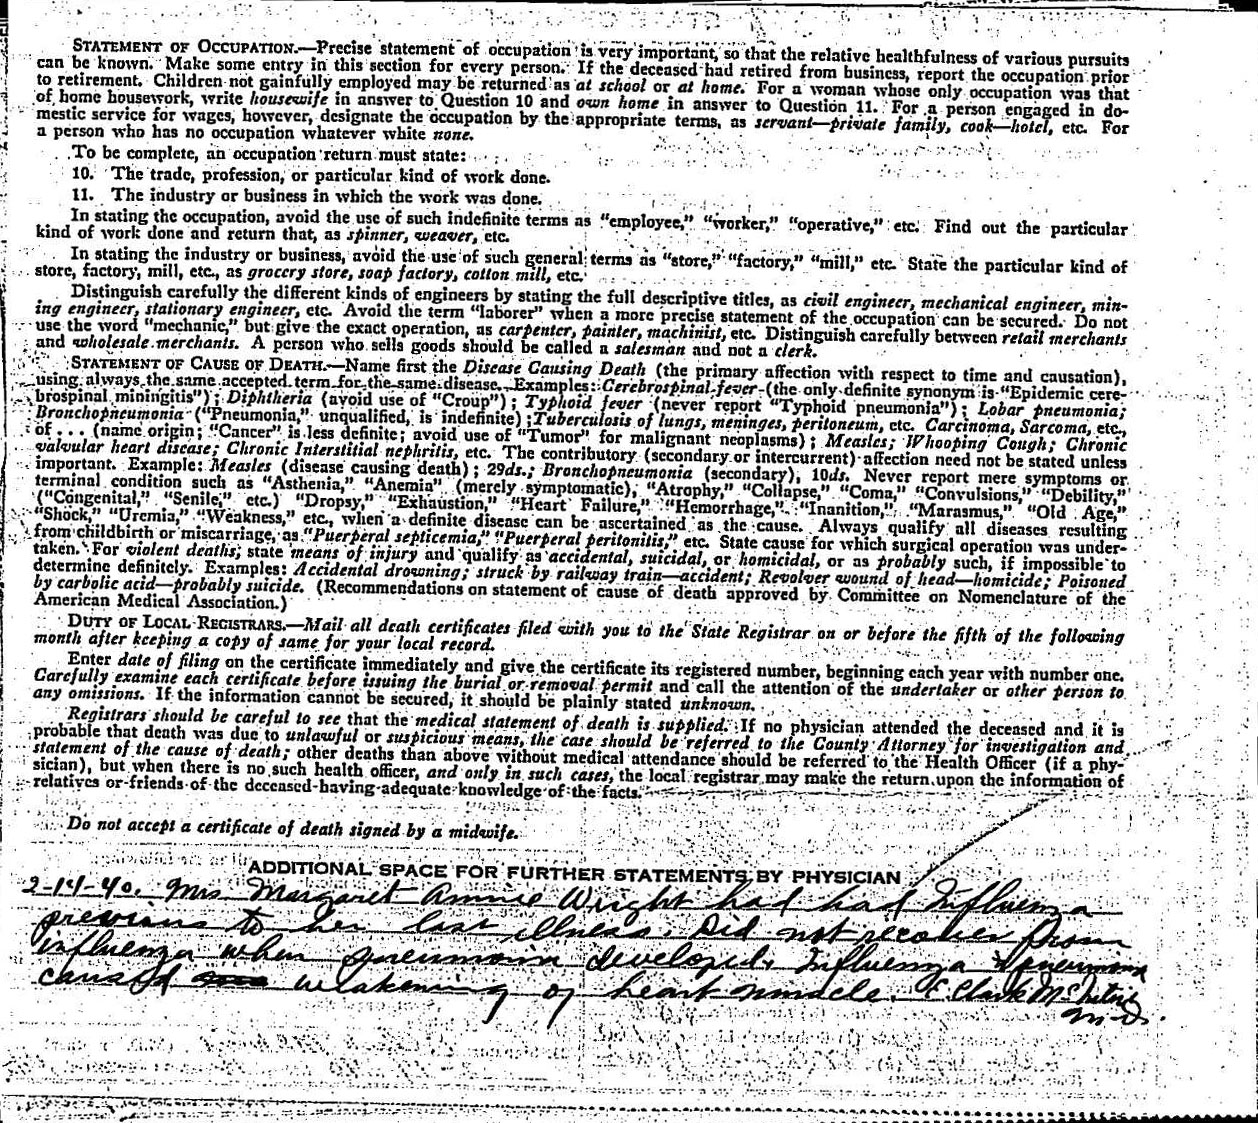 STATEMENT OF OCCUPATION.—Precise statement of occupation is very important, so that the relative healthfulness of various pursuits
can be known. Make some entry in this section for every person. If the deceased had retired from business, report the occupation prior
to retirement. Children not gainfully employed may be returned as at school or at home. For a woman whose only occupation was that
of home housework, write housewife in answer to Question 10 and own home in answer to Question 11. For a person engaged in do-
mestic service for wages, however, designate the occupation by the appropriate terms, as servant—private family, cook—hotel, etc. For
a person who has no occupation whatever white none.
To be complete, an occupation return must state:
10. The trade, profession, or particular kind of work done.
11. The industry or business in which the work was done.
In stating the occupation, avoid the use of such indefinite terms as "employee," "worker," "operative," etc. Find out the particular
kind of work done and return that, as spinner, weaver, etc.
In stating the industry or business, avoid the use of such general terms as "store," "factory," "mill," etc. State the particular kind of
store, factory, mill, etc., as grocery store, soap factory, cotton mill, etc.
Distinguish carefully the different kinds of engineers by stating the full descriptive titles, as civil engineer, mechanical engineer, min-
ing engineer, stationary engineer, etc. Avoid the term "laborer" when a more precise statement of the occupation can be secured. Do not
use the word "mechanic," but give the exact operation, as carpenter, painter, machinist, etc. Distinguish carefully between retail merchants
and wholesale merchants. A person who sells goods should be called a salesman and not a clerk.
STATEMENT OF CAUSE OF DEATH.—Name first the Disease Causing Death (the primary affection with respect to time and causation),
using always the same accepted term for the same disease. Examples: Cerebrospinal fever (the only definite synonym is "Epidemic cere-
brospinal miningitis"); Diphtheria (avoid use of "Croup"); Typhoid fever (never report "Typhoid pneumonia"); Lobar pneumonia;
Bronchopneumonia ("Pneumonia," unqualified, is indefinite); Tuberculosis of lungs, meninges, peritoneum, etc. Carcinoma, Sarcoma, etc.,
of . . . (name origin; "Cancer" is less definite; avoid use of "Tumor" for malignant neoplasms); Measles; Whooping Cough; Chronic
valvular heart disease; Chronic Interstitial nephritis, etc. The contributory (secondary or intercurrent) affection need not be stated unless
important. Example: Measles (disease causing death); 29ds.; Bronchopneumonia (secondary), 10ds. Never report mere symptoms or
terminal condition such as "Asthenia," "Anemia" (merely symptomatic), "Atrophy," "Collapse," "Coma," "Convulsions," "Debility,"
("Congenital," "Senile," etc.) "Dropsy," "Exhaustion," "Heart Failure," "Hemorrhage," "Inanition," "Marasmus," "Old Age,"
"Shock," "Uremia," "Weakness," etc., when a definite disease can be ascertained as the cause. Always qualify all diseases resulting
from childbirth or miscarriage, as "Puerperal septicemia," "Puerperal peritonitis," etc. State cause for which surgical operation was under-
taken. For violent deaths, state means of injury and qualify as accidental, suicidal, or homicidal, or as probably such, if impossible to
determine definitely. Examples: Accidental drowning; struck by railway train—accident; Revolver wound of head—homicide; Poisoned
by carbolic acid—probably suicide. (Recommendations on statement of cause of death approved by Committee on Nomenclature of the
American Medical Association.)
DUTY OF LOCAL REGISTRARS.—Mail all death certificates filed with you to the State Registrar on or before the fifth of the following
month after keeping a copy of same for your local record.
Enter date of filing on the certificate immediately and give the certificate its registered number, beginning each year with number one.
Carefully examine each certificate before issuing the burial or removal permit and call the attention of the undertaker or other person to
any omissions. If the information cannot be secured, it should be plainly stated unknown.
Registrars should be careful to see that the medical statement of death is supplied. If no physician attended the deceased and it is
probable that death was due to unlawful or suspicious means, the case should be referred to the County Attorney for investigation and
statement of the cause of death; other deaths than above without medical attendance should be referred to the Health Officer (if a phy-
sician), but when there is no such health officer, and only in such cases, the local registrar may make the return upon the information of
relatives or friends of the deceased having adequate knowledge of the facts.
Do not accept a certificate of death signed by a midwife.
ADDITIONAL SPACE FOR FURTHER STATEMENTS BY PHYSICIAN
2-14-40. Mrs. Margaret Annie Wright had had Influenza
previous to her last illness. Did not recover from
influenza when pneumonia developed. Influenza & pneumonia
caused weakening of heart muscle. C. Clark
M.D.